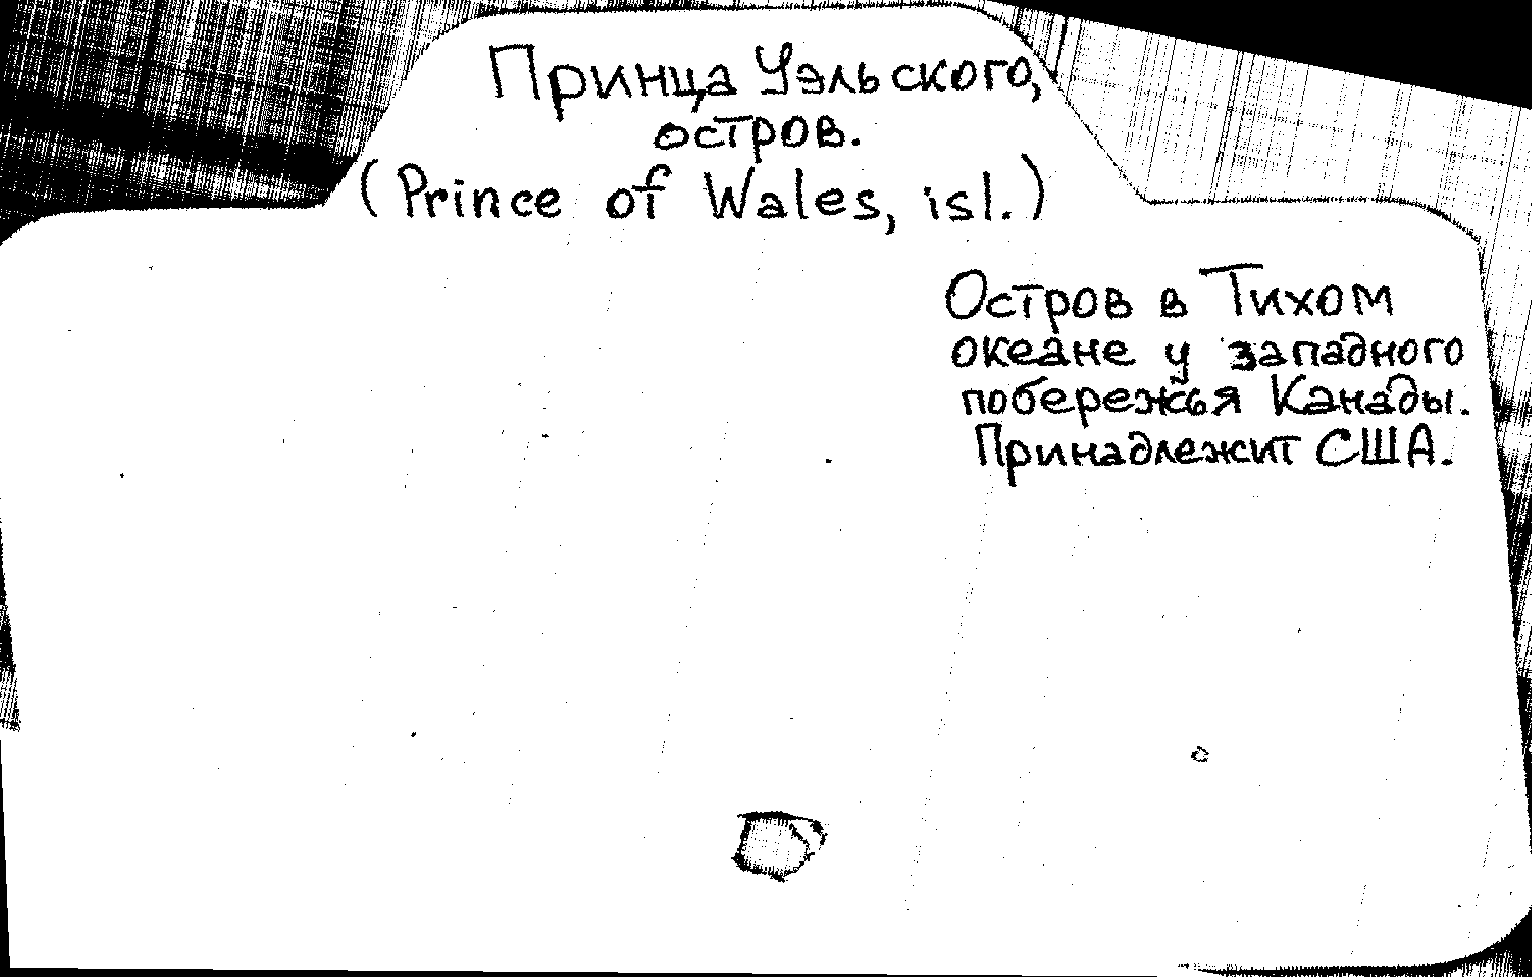 Принца Уэльского,
остров.
(Prince of Wales, isl.)
Остров в Тихом
океане у западного
побережья Канады.
Принадлежит США.